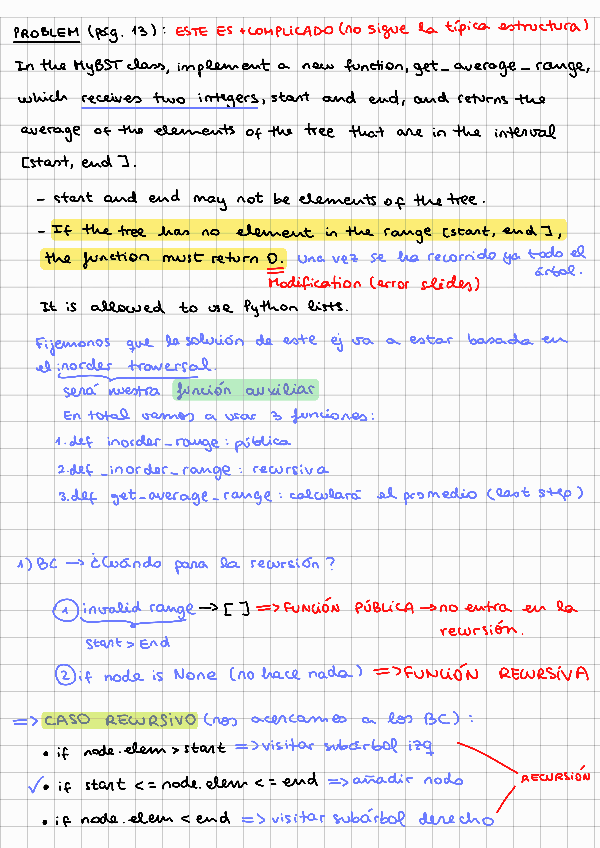 PROBLEM (pág. 13): ESTE ES + COMPLICADO (no sigue la típica estructura)
In the MyBST class, implement a new function, get_average_range,
which receives two integers, start and end, and returns the
average of the elements of the tree that are in the interval
[start, end].
- start and end may not be elements of the tree.
- If the tree has no element in the range [start, end],
the function must return 0. una vez se ha recorrido ya todo el
árbol.
Modification (error slides)
It is allowed to use Python lists.
Fijemonos que la solución de este ej va a estar basada en
el inorder traversal.
será nuestra función auxiliar
En total vamos a usar 3 funciones:
1. def inorder_range: pública
2. def _inorder_range: recursiva
3. def get_average_range: calculará el promedio (last step)
1) BC → ¿Cuándo para la recursión?
① invalid range → [ ] => FUNCIÓN PÚBLICA → no entra en la
recursión.
Start > End
② if node is None (no hace nada) => FUNCIÓN RECURSIVA
=> CASO RECURSIVO (nos acercamos a los BC):
• if node.elem > start => visitar subárbol izq
✓• if start <= node.elem <= end => añadir nodo
RECURSIÓN
• if node.elem < end => visitar subárbol derecho